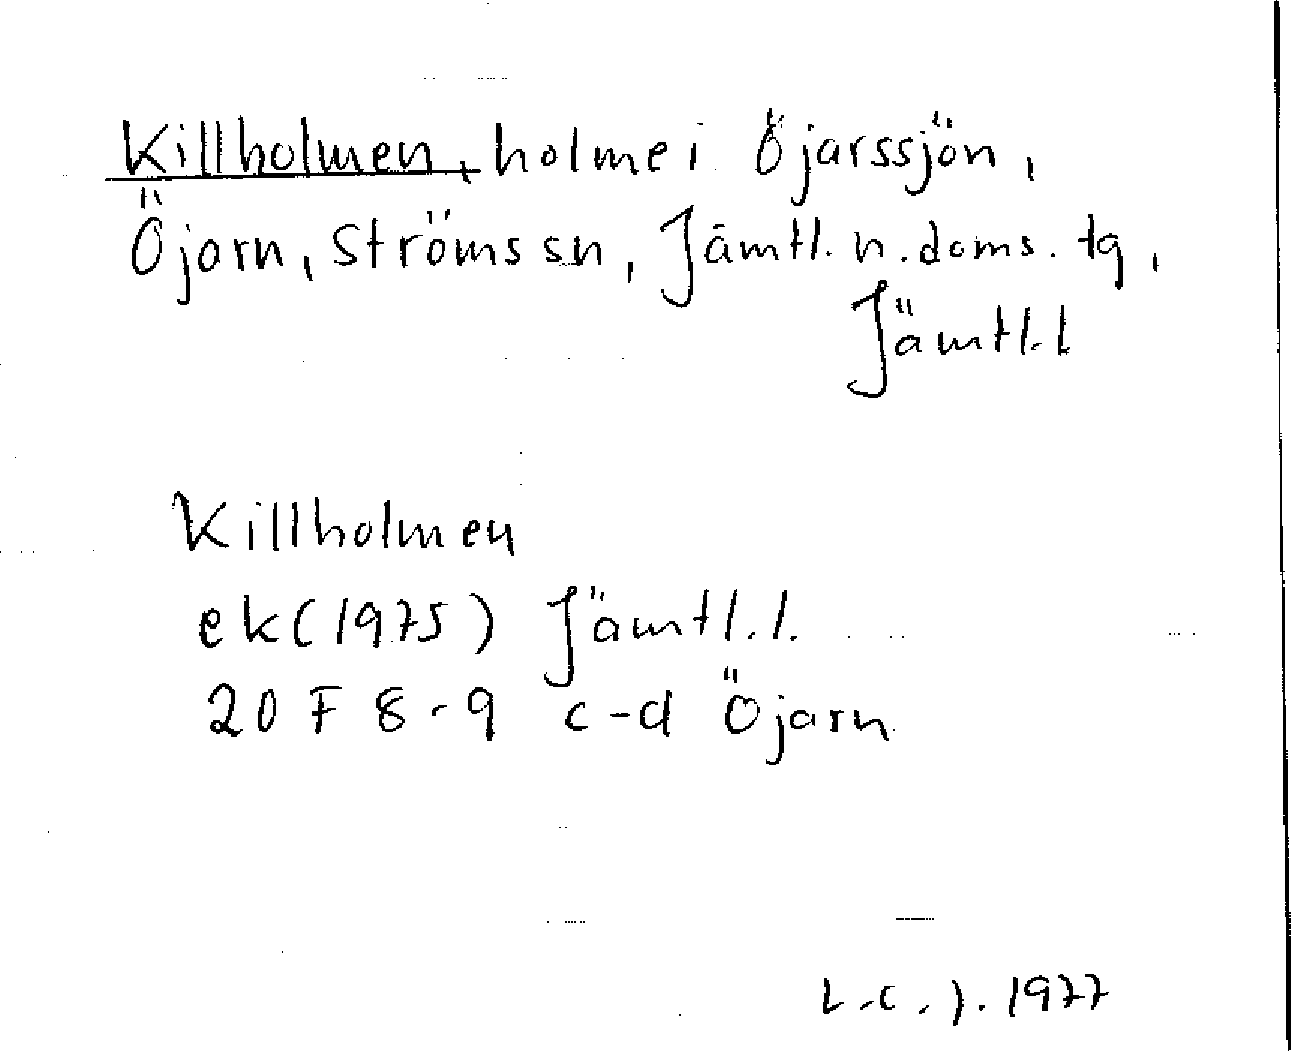 Killholmen, holme i Öjarssjön,
Öjarn, Ströms sn, Jämtl. n. doms. tg,
Jämtl. l
Killholmen
ek (1975) Jämtl. l.
20 F 8-9 c-d Öjarn
L.C.J. 1977